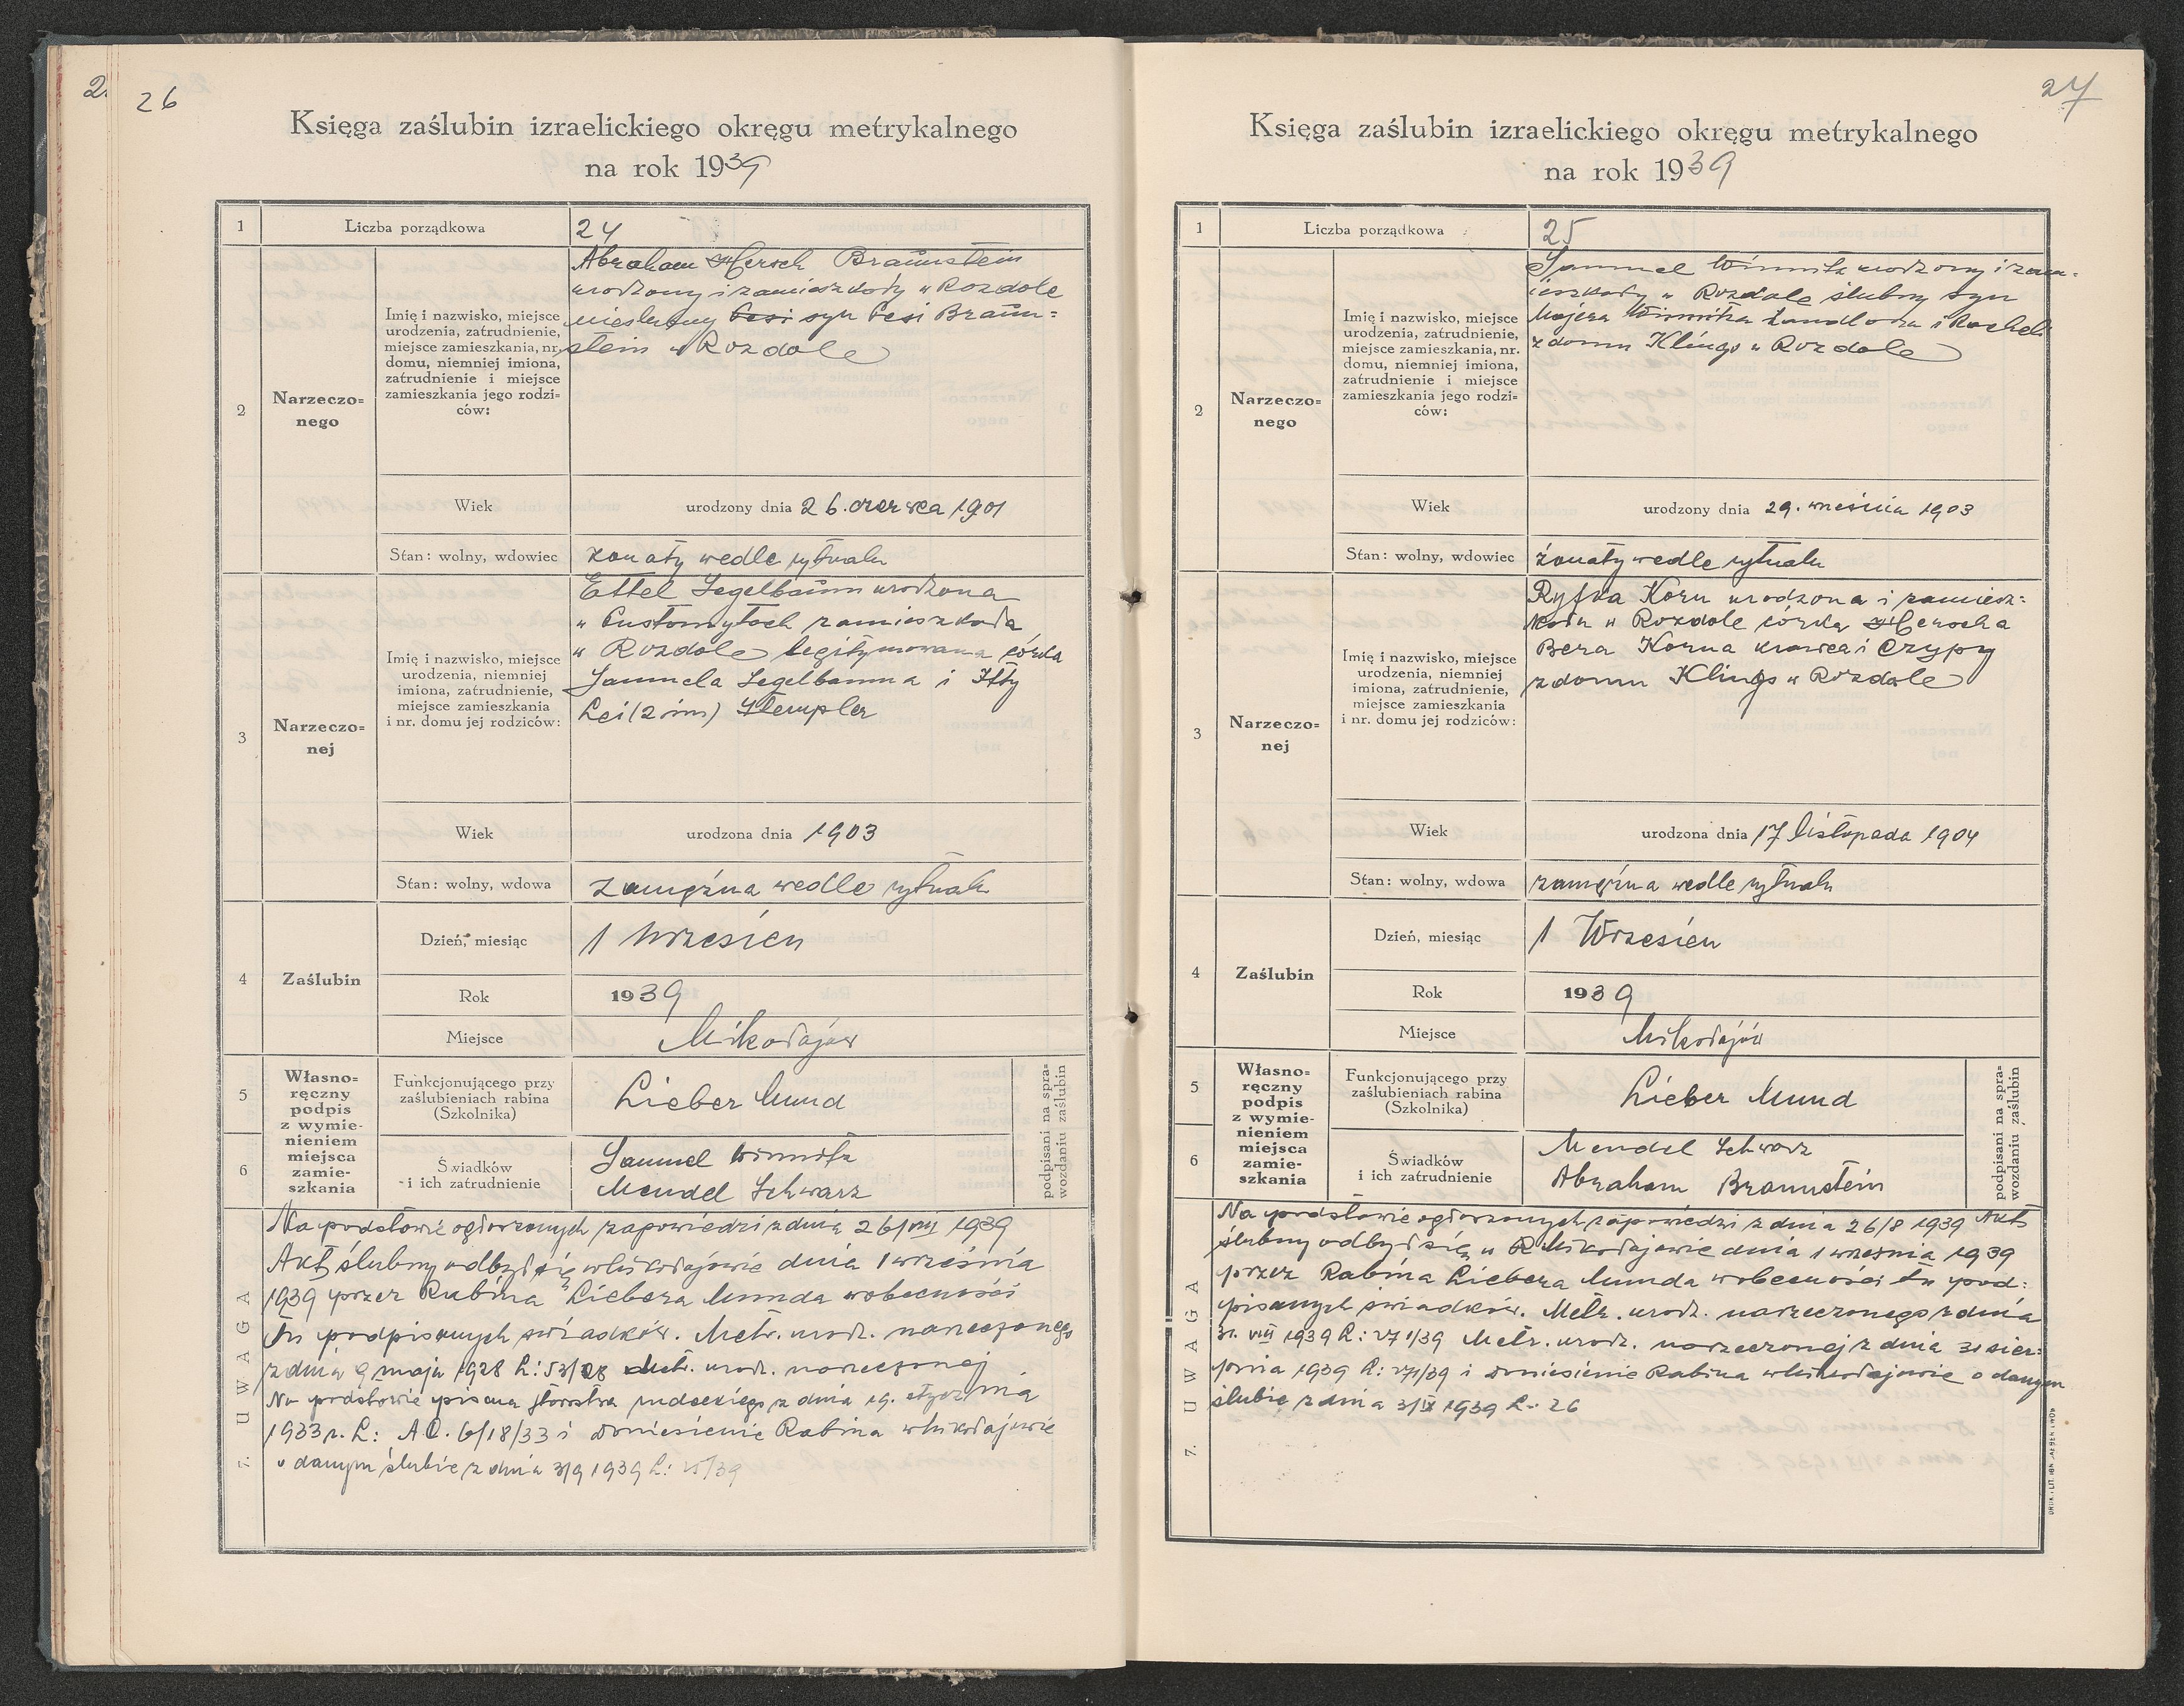 2
26
Księga zaślubin izraelickiego okręgu metrykalnego
na rok 1939
1
Liczba porządkowa
24
2
Narzeczo=
nego
Imię i nazwisko, miejsce
urodzenia, zatrudnienie,
miejsce zamieszkania, nr.
domu, niemniej imiona,
zatrudnienie i miejsce
zamieszkania jego rodzi=
ców:
Abraham Hersch Braunstein
urodzony i zamieszkały w Rozdole
nieślubny besi syn besi Braun=
stein w Rozdole
Wiek
urodzony dnia 26. czerwca 1901
Stan: wolny, wdowiec
żonaty wedle rytuału
3
Narzeczo=
nej
Imię i nazwisko, miejsce
urodzenia, niemniej
imiona, zatrudnienie,
miejsce zamieszkania
i nr. domu jej rodziców:
Ettel Segelbaum urodzona
w Pustomytach zamieszkała
w Rozdole legitymowana córka
Samuela Segelbauma i Itty
Lei (2 im) Stempler
Wiek
urodzona dnia 1903
Stan: wolny, wdowa
zamężna wedle rytuału
4
Zaślubin
Dzień, miesiąc
1 Wrzesień
Rok
1939
Miejsce
Mikołajów
5
6
Własno=
ręczny
podpis
z wymie-
nieniem
miejsca
zamie-
szkania
Funkcjonującego przy
zaślubieniach rabina
(Szkolnika)
Lieber Mund
Świadków
i ich zatrudnienie
Samuel Winnitz
Mendel Schwarz
podpisani na spra-
wozdaniu zaślubin
7. UWAGA
Na podstawie ogłoszonych zapowiedzi z dnia 26/VIII 1939
Akt ślubny odbył się w Mikołajowie dnia 1 września
1939 przez Rabina Liebera Munda w obecności
tu podpisanych świadków. Metr. urodz. narzeczonego
z dnia 9 maja 1928 L: 53/28 Metr. urodz. narzeczonej
Na podstawie pisma Starostwa rudeckiego z dnia 19. stycznia
1933 r. L: AC. 6/18/33 i doniesienie Rabina w Mikołajowie
o danym ślubie z dnia 3/9 1939 L: 25/39
27
Księga zaślubin izraelickiego okręgu metrykalnego
na rok 1939
1
Liczba porządkowa
25
2
Narzeczo=
nego
Imię i nazwisko, miejsce
urodzenia, zatrudnienie,
miejsce zamieszkania, nr.
domu, niemniej imiona,
zatrudnienie i miejsce
zamieszkania jego rodzi=
ców:
Samuel Winnitz urodzony i zam=
ieszkały w Rozdole ślubny syn
Majera Winnitza handlarza i Racheli
z domu Klings w Rozdole
Wiek
urodzony dnia 29. września 1903
Stan: wolny, wdowiec
żonaty wedle rytuału
3
Narzeczo=
nej
Imię i nazwisko, miejsce
urodzenia, niemniej
imiona, zatrudnienie,
miejsce zamieszkania
i nr. domu jej rodziców:
Ryfka Korn urodzona i zamiesz=
kała w Rozdole córka Herscha
Bera Korna krawca i Czypy
z domu Klings w Rozdole
Wiek
urodzona dnia 17 listopada 1904
Stan: wolny, wdowa
zamężna wedle rytuału
4
Zaślubin
Dzień, miesiąc
1 Wrzesień
Rok
1939
Miejsce
Mikołajów
5
6
Własno=
ręczny
podpis
z wymie-
nieniem
miejsca
zamie-
szkania
Funkcjonującego przy
zaślubieniach rabina
(Szkolnika)
Lieber Mund
Świadków
i ich zatrudnienie
Mendel Schwarz
Abraham Braunstein
podpisani na spra-
wozdaniu zaślubin
7. UWAGA
Na podstawie ogłoszonych zapowiedzi z dnia 26/8 1939 Akt
ślubny odbył się w R Mikołajowie dnia 1 września 1939
przez Rabina Liebera Munda w obecności tu pod=
pisanych świadków. Metr. urodz. narzeczonego z dnia
31. VIII 1939 L: 271/39 Metr. urodz. narzeczonej z dnia 31 sier=
pnia 1939 L: 271/39 i doniesienie Rabina w Mikołajowie o danym
ślubie z dnia 3/IX 1939 L: 26